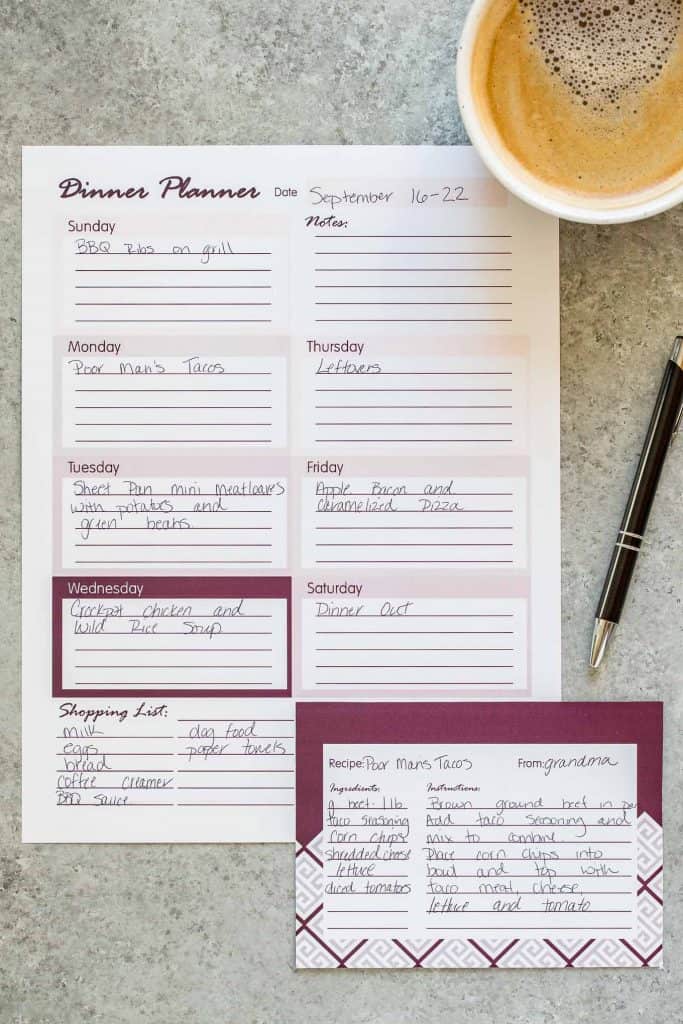 Dinner Planner Date September 16-22
Sunday
BBQ Ribs on grill
Notes:
Monday
Poor Man's Tacos
Thursday
Leftovers
Tuesday
Sheet Pan mini meatloaves
with potatoes and
green beans
Friday
Apple Bacon and
Caramelized Pizza
Wednesday
Crockpot chicken and
Wild Rice Soup
Saturday
Dinner Out
Shopping List:
milk
eggs
bread
coffee creamer
BBQ sauce
dog food
paper towels
Recipe: Poor Mans Tacos From: grandma
Ingredients:
g. beef. 1 lb
taco seasoning
corn chips
shredded chese
lettuce
diced tomatoes
Instructions:
Brown ground beef in pan
Add taco seasoning and
mix to combine.
Place corn chips into
bowl and top with
taco meat, cheese,
lettuce and tomato